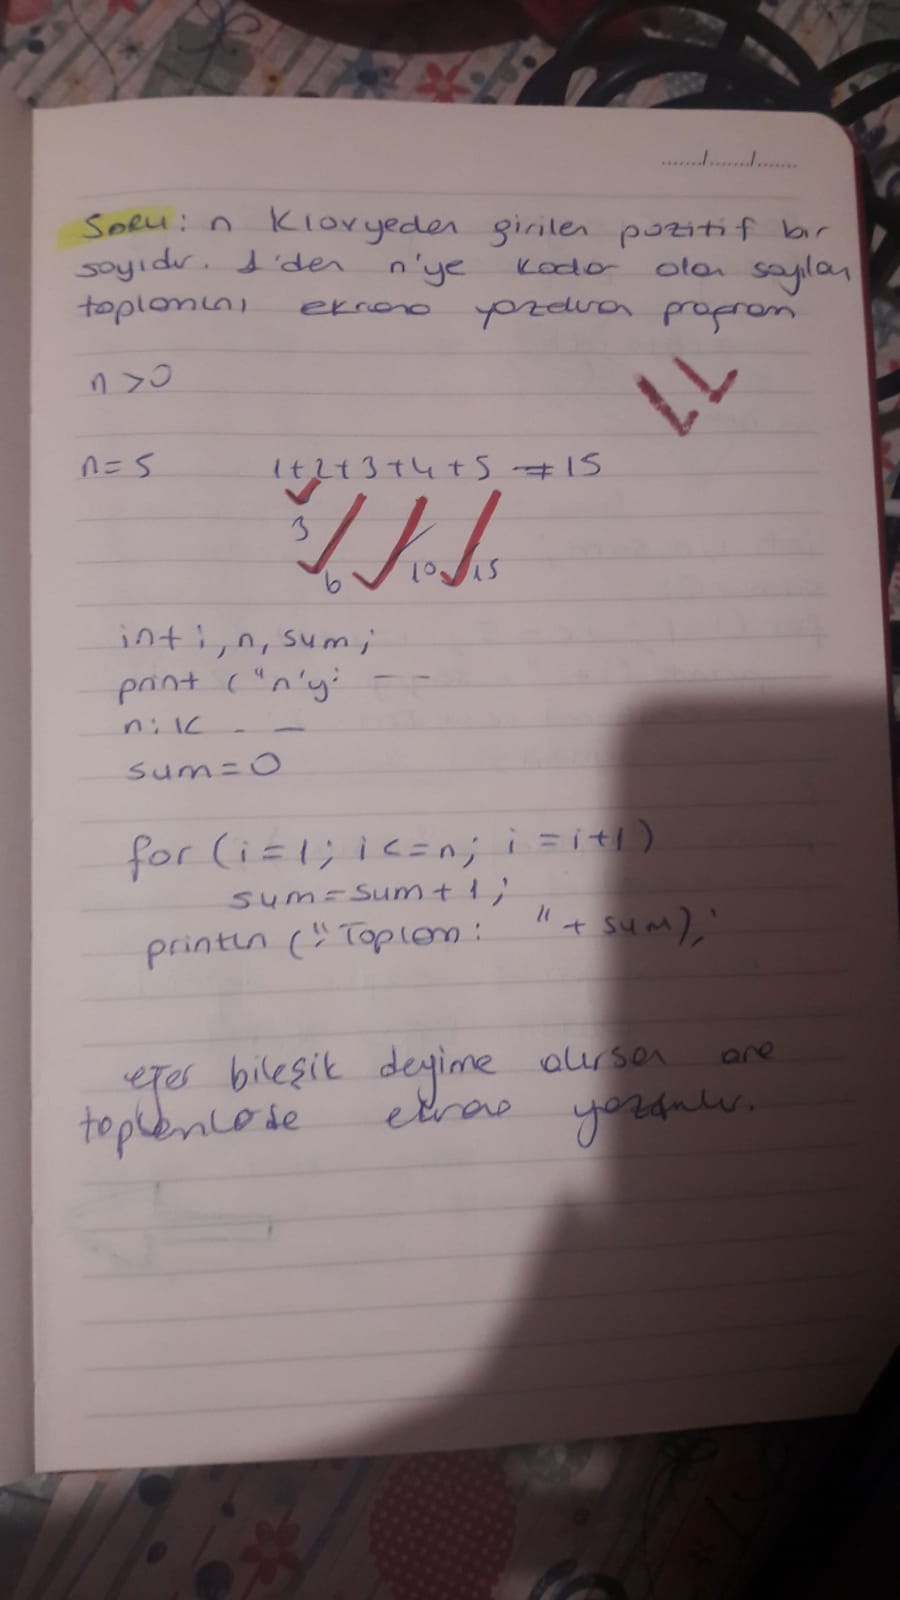 ...../...../.....
Soru: n Klavyeden girilen pozitif bir
sayıdır. 1'den n'ye kadar olan sayıların
toplamını ekrana yazdıran program
n>0
n=5 1+2+3+4+5 = 15
3
6 10 15
int i, n, sum;
print ("n'y: - -
n: K - -
sum=0
for (i=1; i<=n; i=i+1)
sum=sum+1;
println ("Toplam: " + sum);
eğer bileşik deyime alırsan ara
toplamlarda ekrana yazılır.